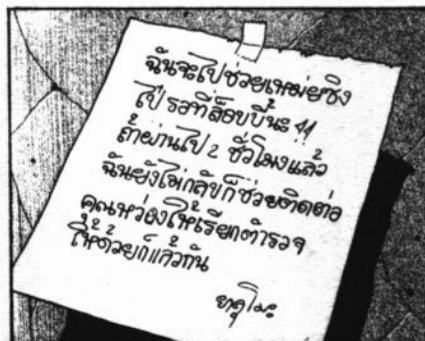 ฉันจะไปช่วยเหม่ยซิง
ไปรอที่ล็อบบี้นะ !!
ถ้าผ่านไป 2 ชั่วโมงแล้ว
ฉันยังไม่กลับก็ช่วยติดต่อ
คุณหว่องให้เรียกตำรวจ
ให้ด้วยก็แล้วกัน